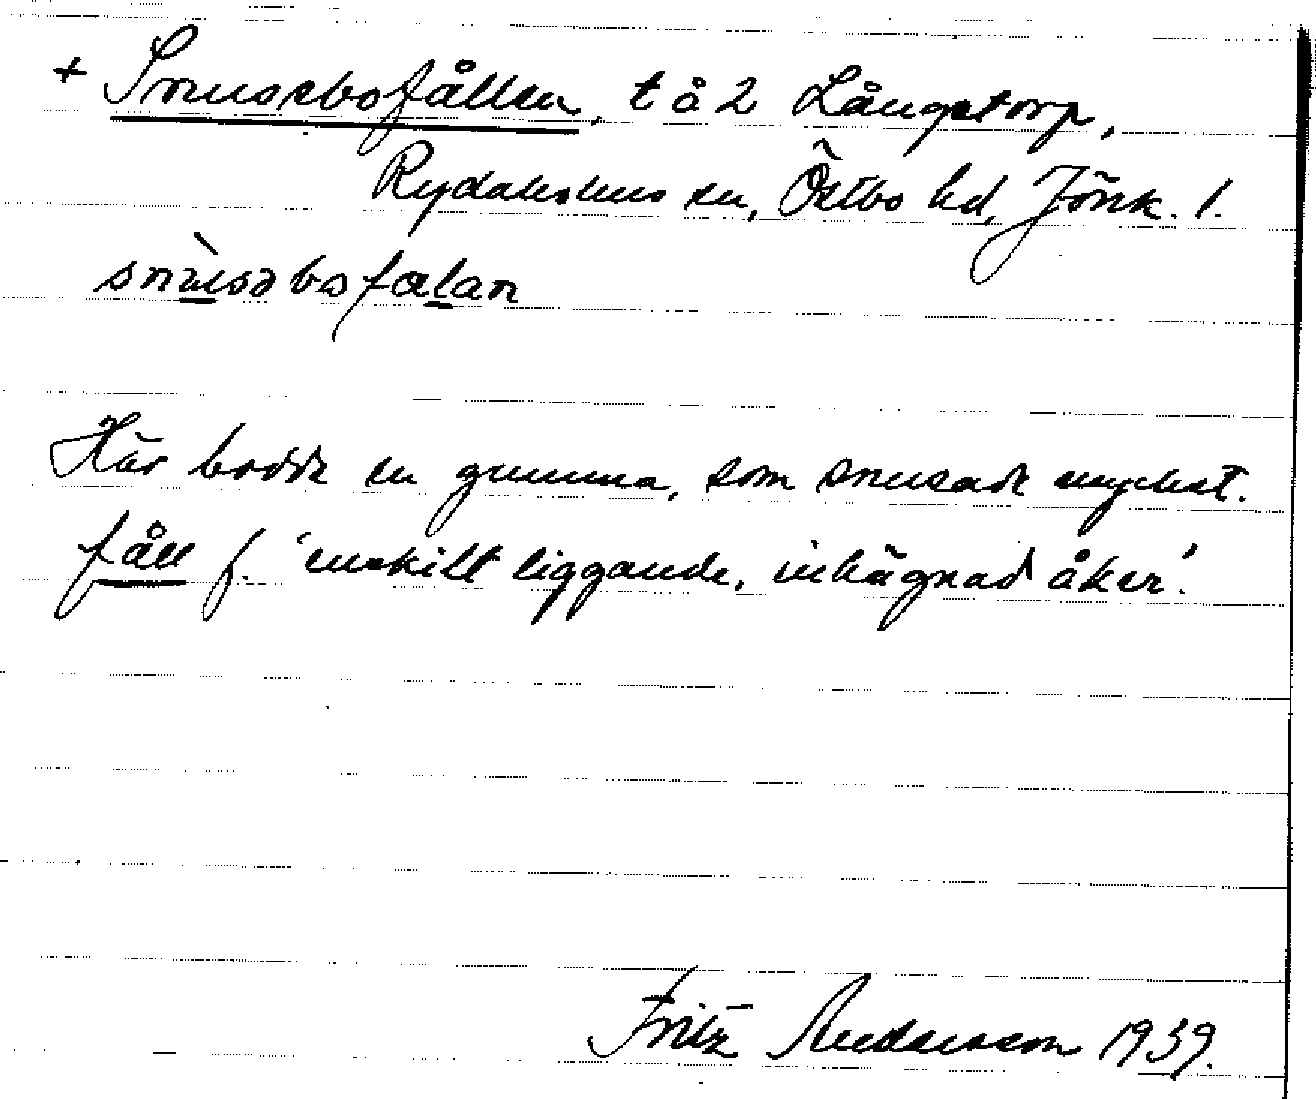 + Snusebofållen, t å 2 Långstorp,
Rydaholms sn, Östbo hd, Jönk. l.
snùsəbofalan
Här bodde en gumma, som snusade mycket.
fåll f. 'enskilt liggande, inhägnad åker'.
Fritz Andersson 1939.